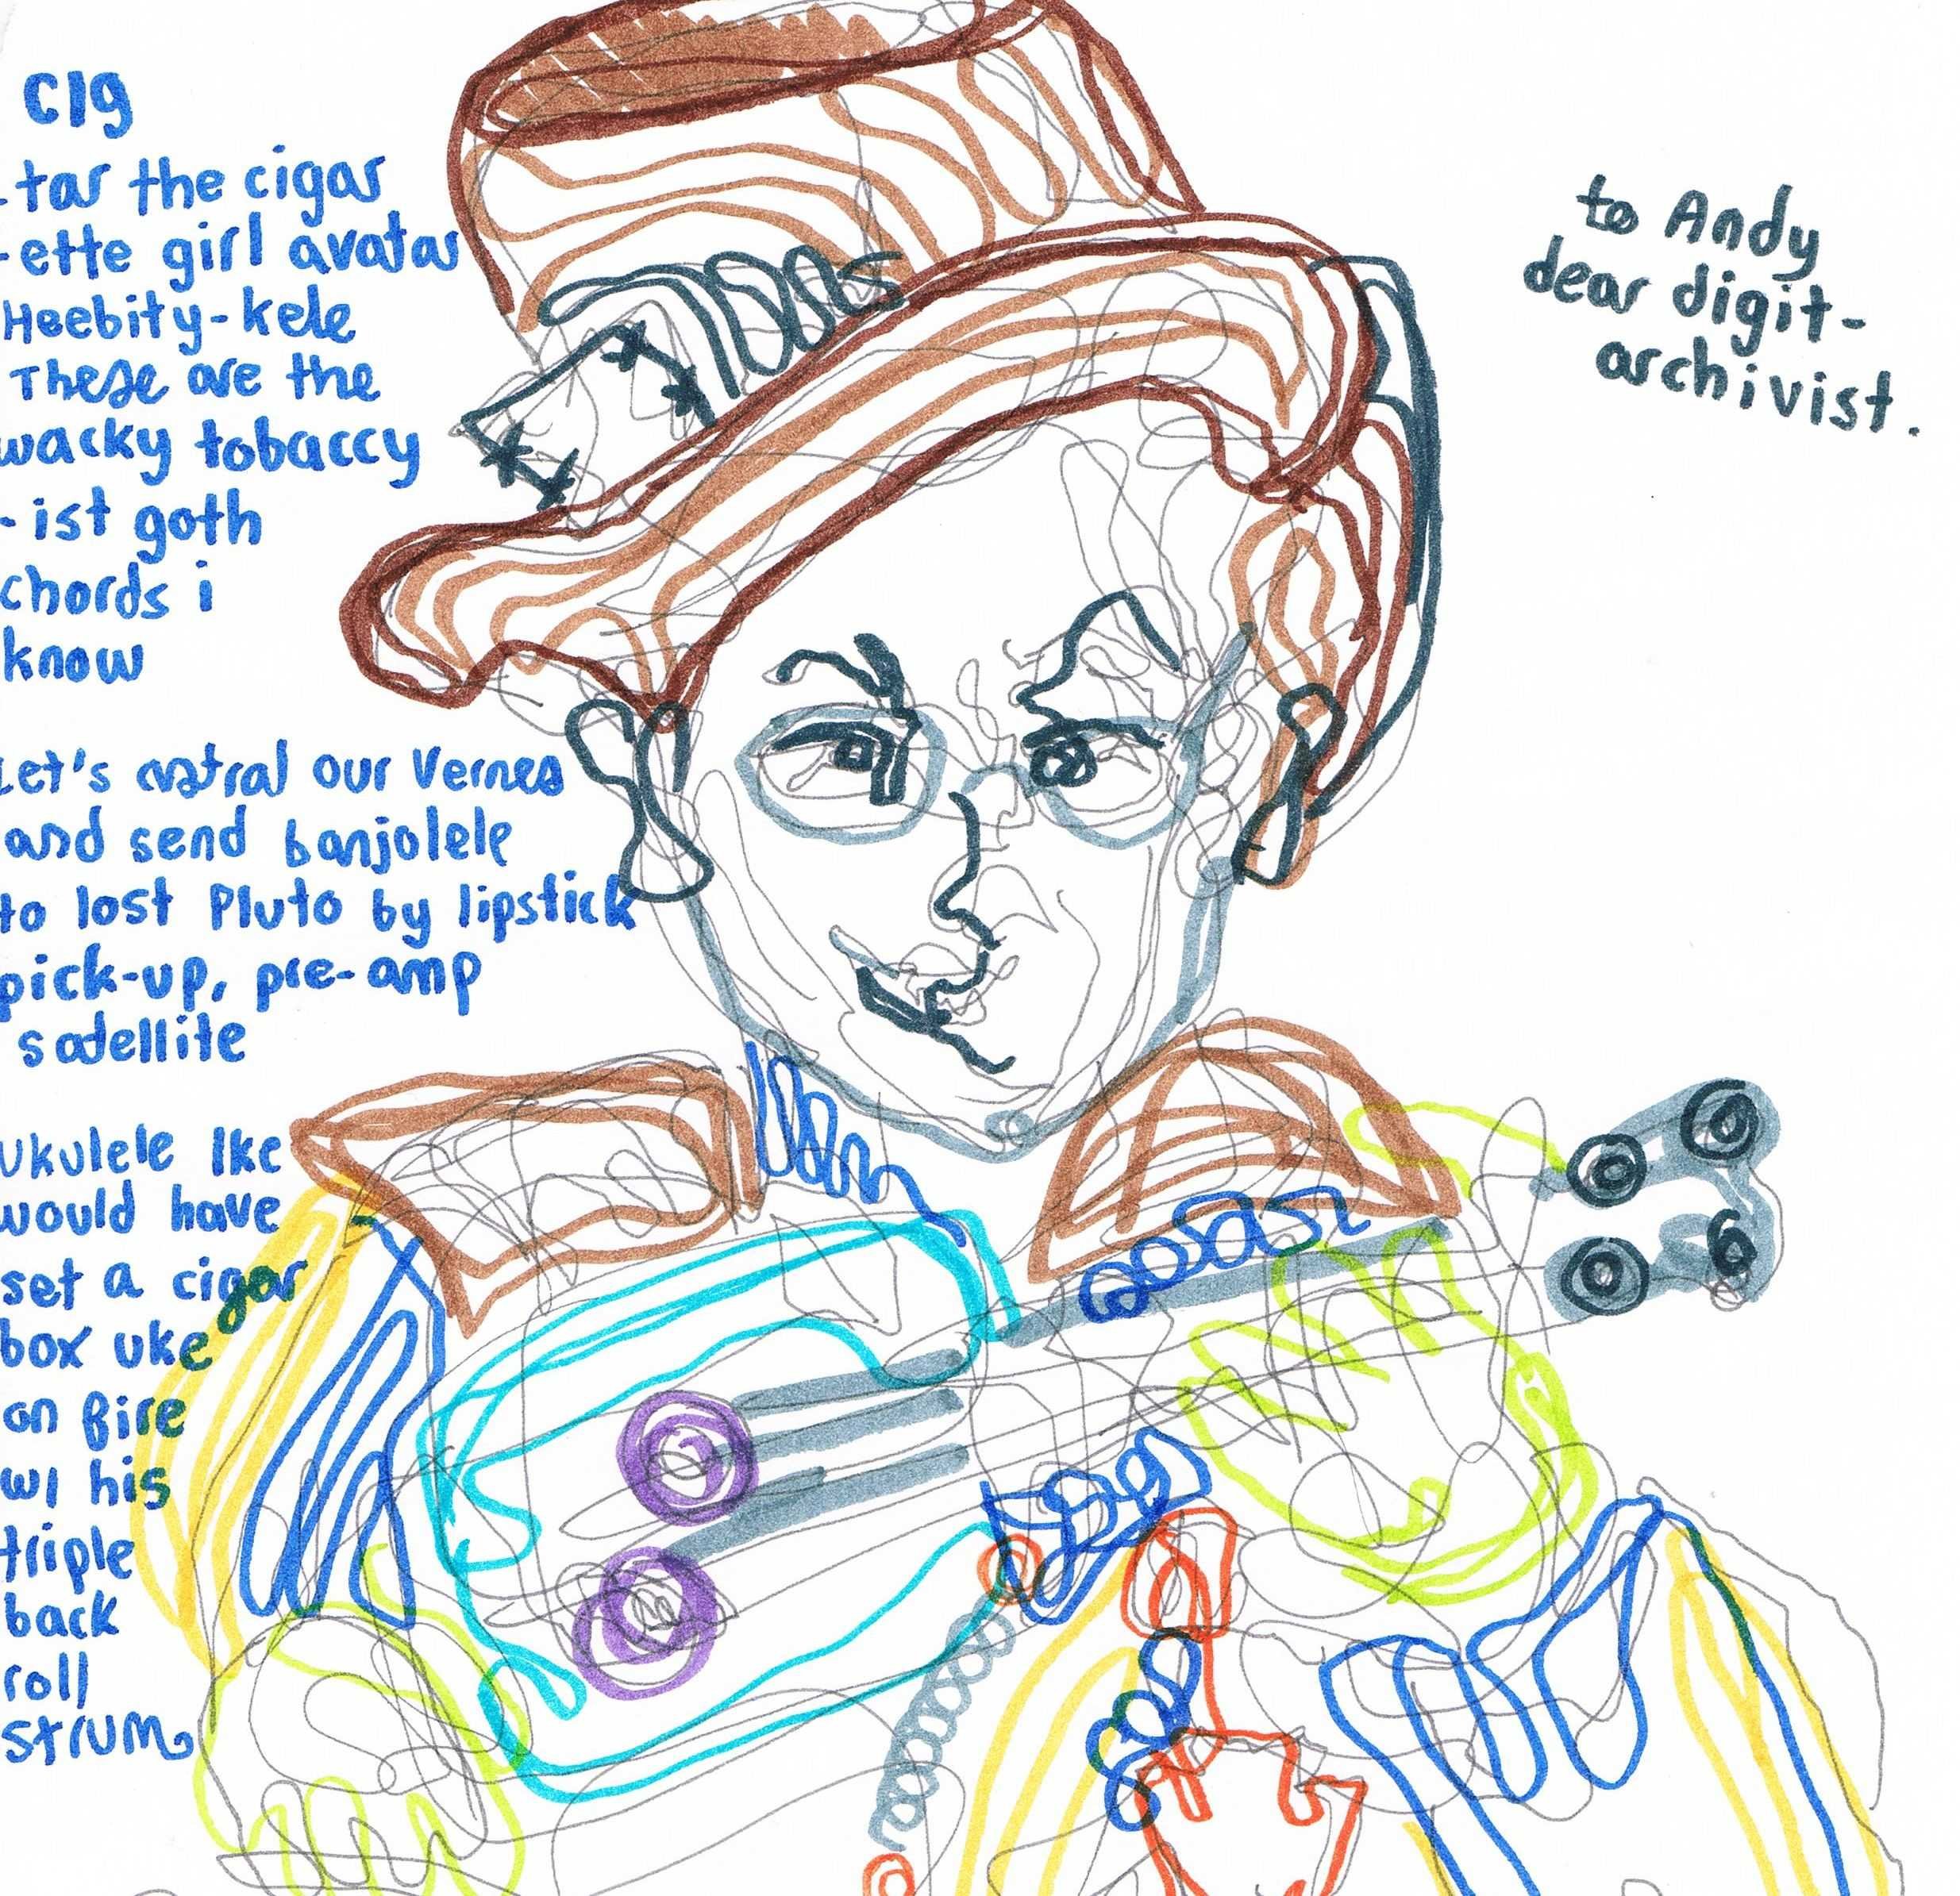 cig
-tar the cigar
-ette girl avatar
Heebity-kele
These are the
wacky tobaccy
-ist goth
chords i
know
Let's astral our Vernes
and send banjolele
to lost Pluto by lipstick
pick-up, pre-amp
satellite
ukulele Ike
would have
set a cigar
box uke
on fire
w/ his
triple
back
roll
strum
to Andy
dear digit-
archivist.